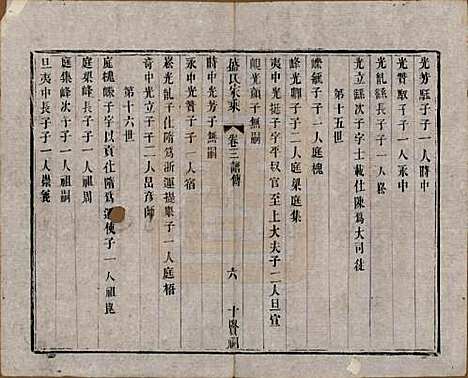 光芳馭子子一人時中
光贊馭子子一人承中
光亂繇子子一人崧
光立繇次子字士載仕陳爲大司徒
第十五世
巘纁子子一人庭槐
峰光驛子子二人庭桌庭集
夷中光挺子字平叔官至上大夫子二人旦宣
峴光薊子無嗣
盛氏家乘 卷三譜傳 六 十賢祠
時中光芳子無嗣
承中光贊子子一人宿
崧光亂子仕隋爲浙運提舉子一人庭梧
奇中光立子子二人昌彥師
第十六世
庭槐巘子字以貢仕隋爲運使子一人祖崑
庭桌峰長子子一人祖周
庭集峰次子子一人祖嗣
旦夷中長子子一人崇